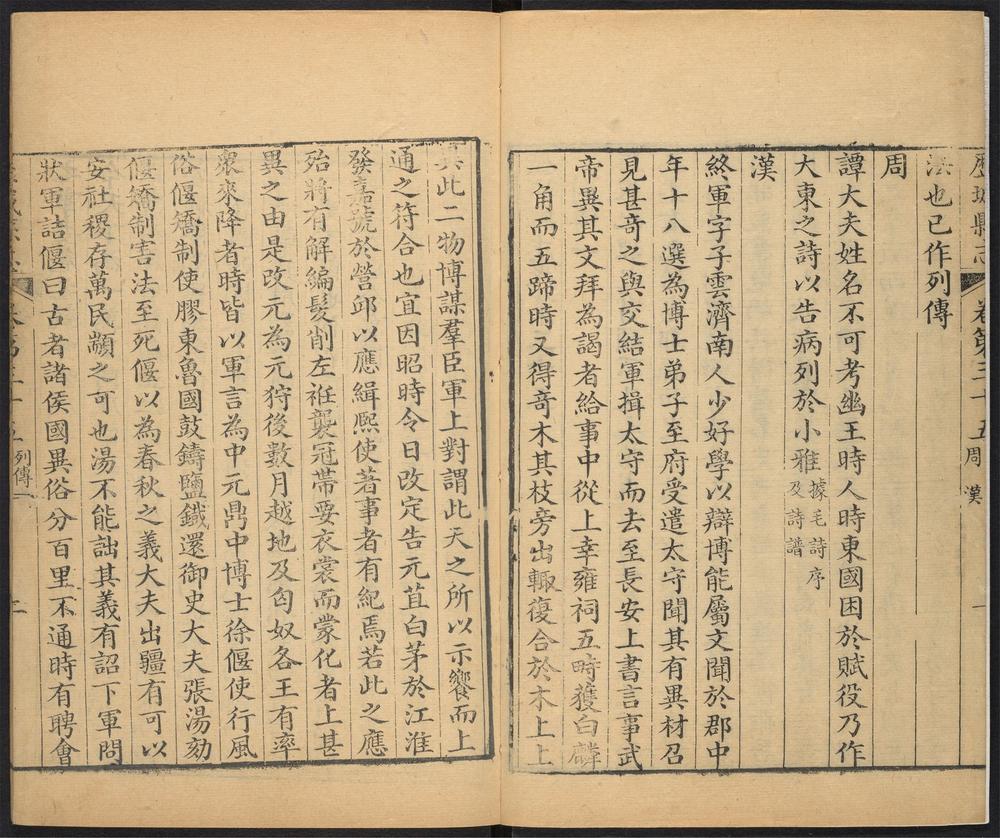 歷城縣志 卷第三十五 周 漢 一
法也已作列傳
周
譚大夫姓名不可考幽王時人時東國困於賦役乃作
大東之詩以告病列於小雅據毛詩序及詩譜
漢
終軍字子雲濟南人少好學以辯博能屬文聞於郡中
年十八選為博士弟子至府受遣太守聞其有異材召
見甚奇之與交結軍揖太守而去至長安上書言事武
帝異其文拜為謁者給事中從上幸雍祠五畤獲白麟
一角而五蹄時又得奇木其枝旁出輒復合於木上上
異此二物博謀羣臣軍上對謂此天之所以示饗而上
通之符合也宜因昭時令日改定告元苴白茅於江淮
發嘉號於營邱以應緝熙使著事者有紀焉若此之應
殆將有解編髮削左衽襲冠帶要衣裳而蒙化者上甚
異之由是改元為元狩後數月越地及匈奴各王有率
眾來降者時皆以軍言為中元鼎中博士徐偃使行風
俗偃矯制使膠東魯國鼓鑄鹽鐵還御史大夫張湯劾
偃矯制害法至死偃以為春秋之義大夫出疆有可以
安社稷存萬民顓之可也湯不能詘其義有詔下軍問
狀軍詰偃曰古者諸侯國異俗分百里不通時有聘會
卷第三十五 列傳一 二